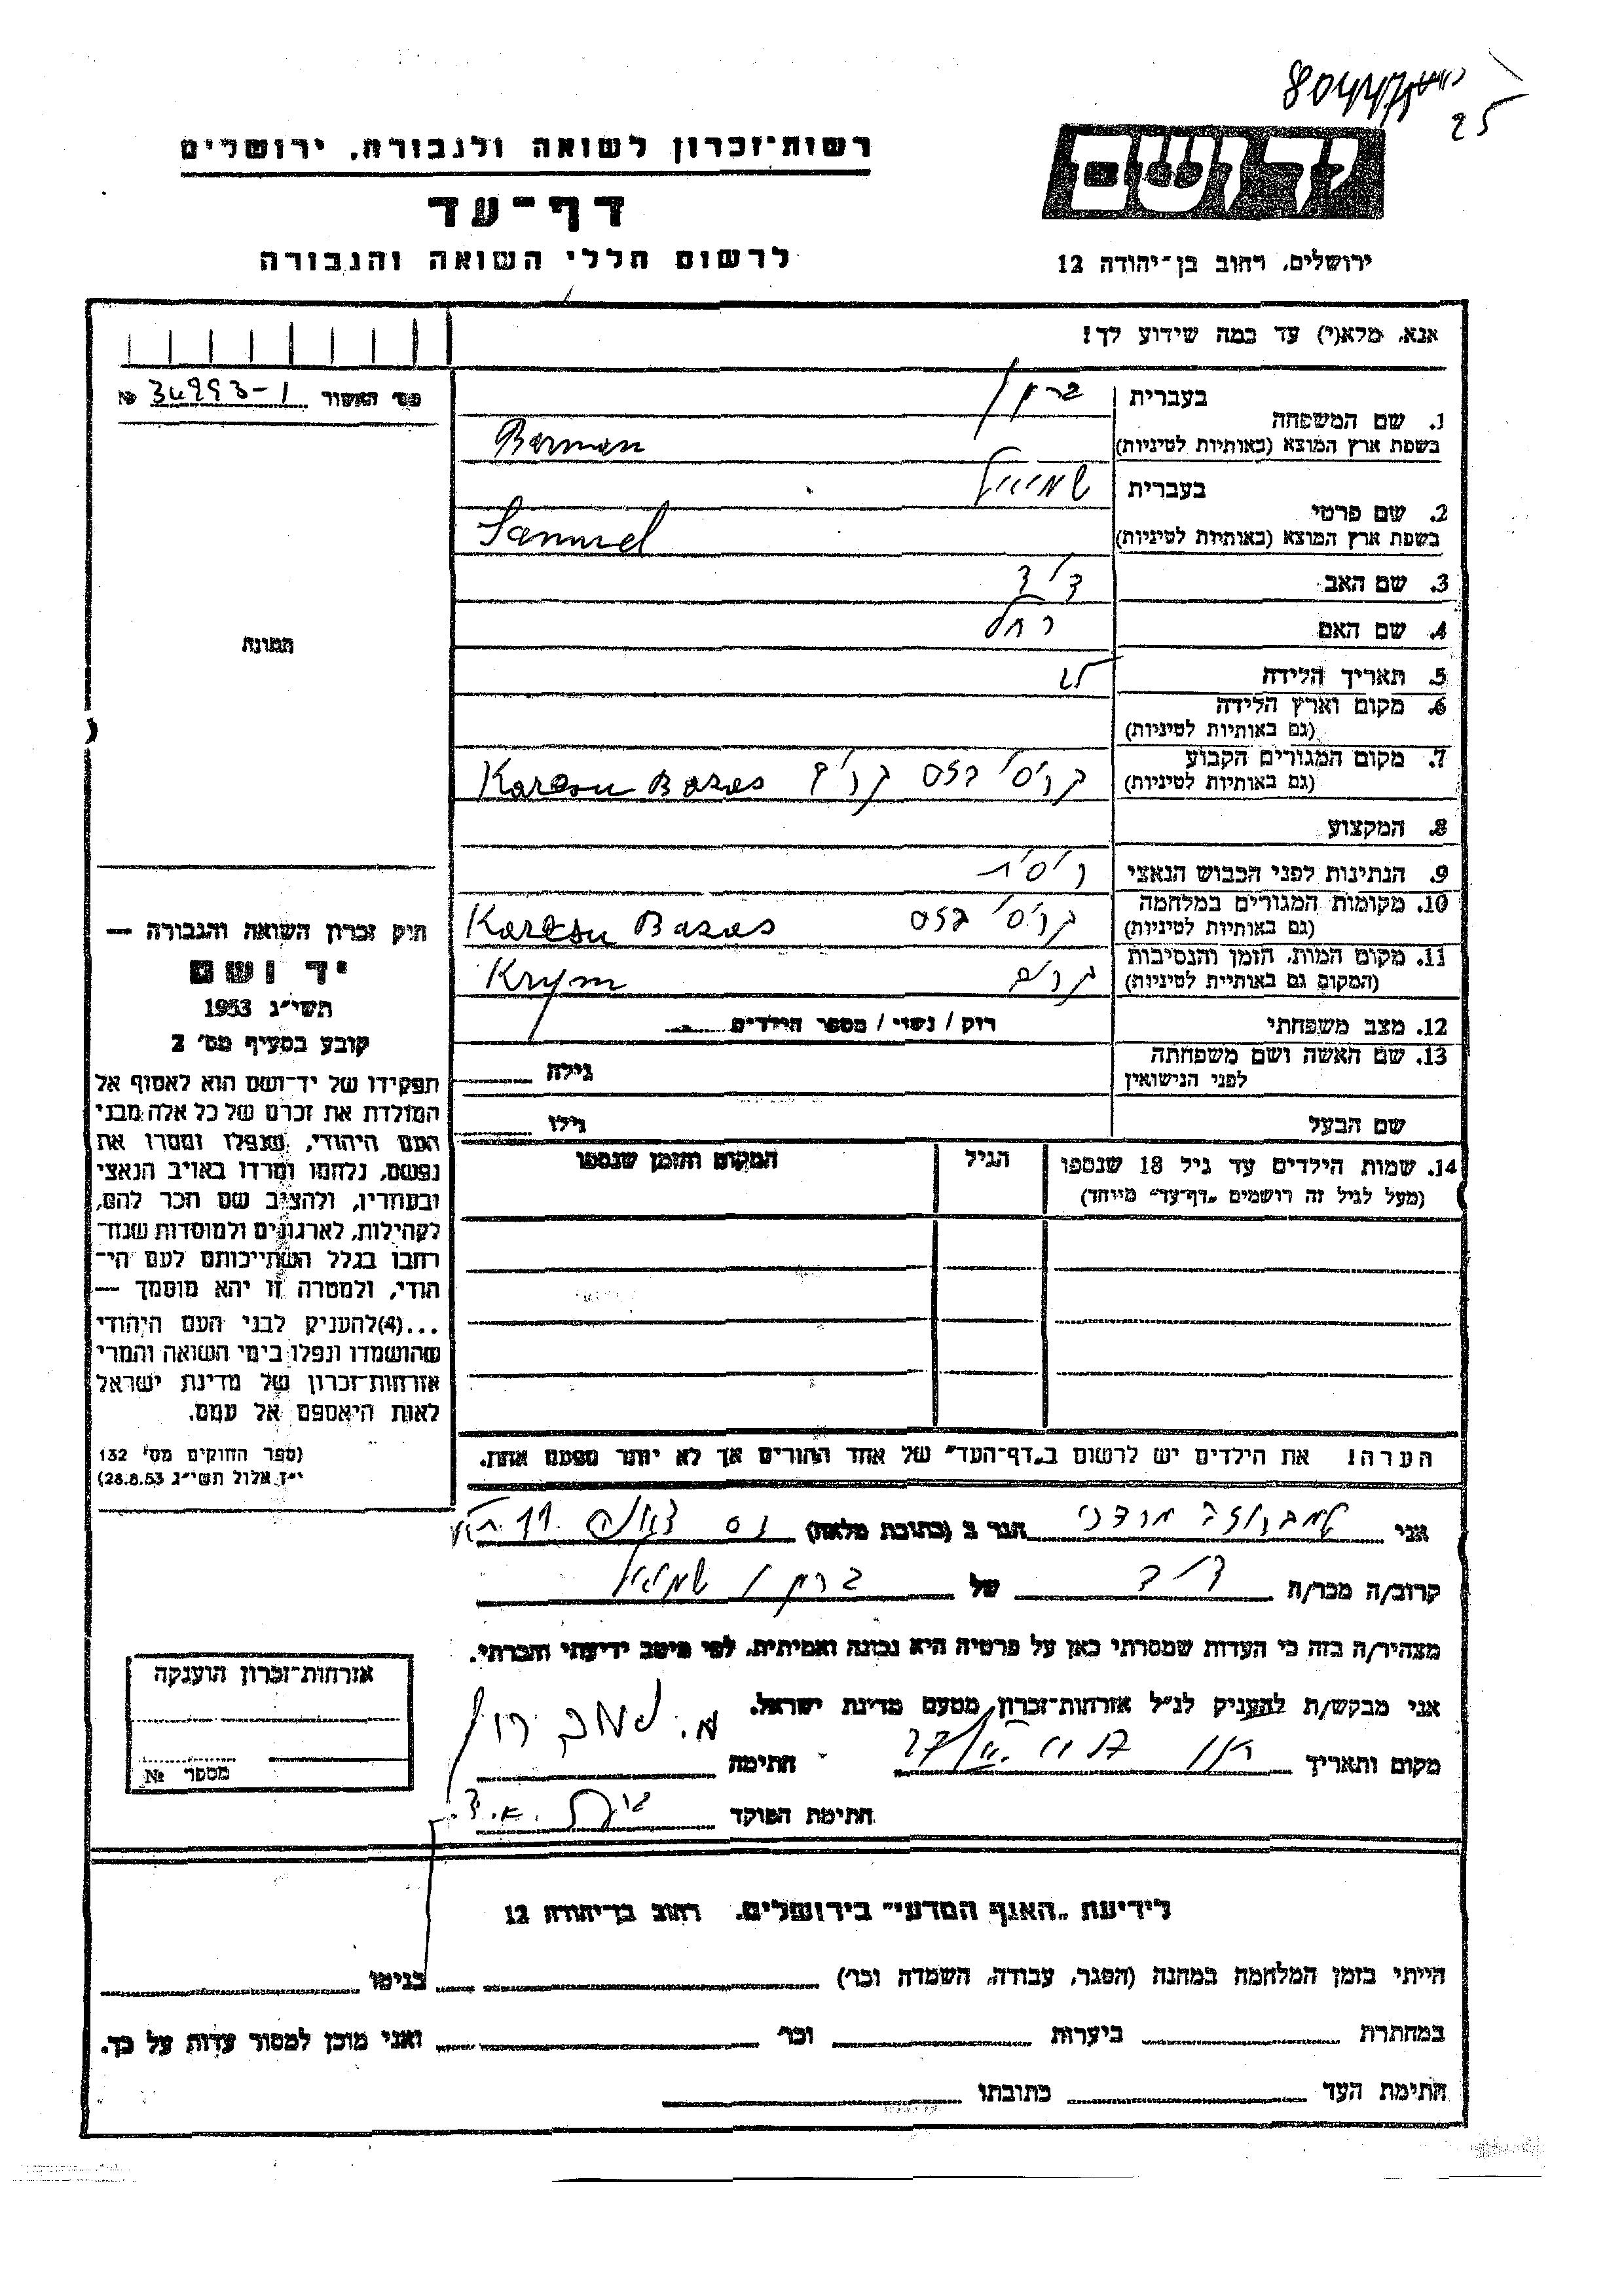 25
רשות־זכרון לשואה ולגבורה, ירושלים
יד ושם
דף־עד
לרשום חללי השואה והגבורה
ירושלים, רחוב בן־יהודה 12
אנא, מלא(י) עד כמה שידוע לך!
מס׳ האשור № 34993-1
1. שם המשפחה בעברית ברמן
בשפת ארץ המוצא (באותיות לטיניות) Barman
2. שם פרטי בעברית שמואל
בשפת ארץ המוצא (באותיות לטיניות) Samuel
3. שם האב
4. שם האם רחל
תמונה
5. תאריך הלידה
6. מקום וארץ הלידה
(גם באותיות לטיניות)
7. מקום המגורים הקבוע
(גם באותיות לטיניות) Karasu Bazas
8. המקצוע
9. הנתינות לפני הכבוש הנאצי
10. מקומות המגורים במלחמה
(גם באותיות לטיניות) Karasu Bazas
11. מקום המות, הזמן והנסיבות
(המקום גם באותיות לטיניות) קרים Krym
12. מצב משפחתי רוק / נשוי / מספר הילדים
13. שם האשה ושם משפחתה
לפני הנישואין גילה
שם הבעל גילו
14. שמות הילדים עד גיל 18 שנספו הגיל המקום והזמן שנספו
(מעל לגיל זה רושמים „דף־עד” מיוחד)
חוק זכרון השואה והגבורה —
יד ושם
תשי״ג 1953
קובע בסעיף מס׳ 2
תפקידו של יד־ושם הוא לאסוף אל
המולדת את זכרם של כל אלה מבני
העם היהודי, שנפלו ומסרו את
נפשם, נלחמו ומרדו באויב הנאצי
ובעוזריו, ולהציב שם וזכר להם,
לקהילות, לארגונים ולמוסדות שנח־
רבו בגלל השתייכותם לעם הי־
הודי, ולמטרה זו יהא מוסמך —
...(4)להעניק לבני העם היהודי
שהושמדו ונפלו בימי השואה והמרי
אזרחות־זכרון של מדינת ישראל
לאות היאספם אל עמם.
(ספר החוקים מס׳ 132
י״ז אלול תשי״ג 28.8.53)
הערה! את הילדים יש לרשום ב„דף־העד” של אחד ההורים אך לא יותר מפעם אחת.
אני מרדכי הגר ב (כתובת מלאה) נס
קרוב/ה מכר/ה של ברמן שמואל
מצהיר/ה בזה כי העדות שמסרתי כאן על פרטיה היא נכונה ואמיתית, לפי מיטב ידיעתי והכרתי.
אני מבקש/ת להעניק לנ״ל אזרחות־זכרון מטעם מדינת ישראל.
מקום ותאריך חתימה
חתימת הפוקד
אזרחות־זכרון הוענקה
מספר №
לידיעת „האגף המדעי” בירושלים, רחוב בן־יהודה 12
הייתי בזמן המלחמה במחנה (הסגר, עבודה, השמדה וכו׳) בגיטו
במחתרת ביערות וכו׳ ואני מוכן למסור עדות על כך.
חתימת העד כתובתו